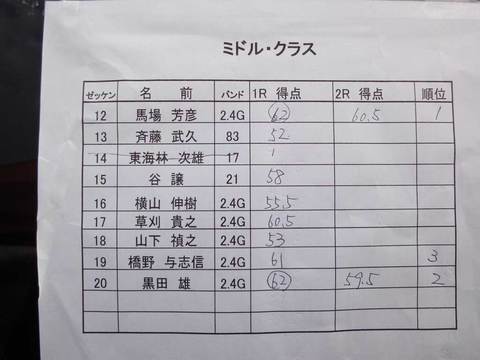 ミドル・クラス
ゼッケン 名 前 バンド 1R 得点 2R 得点 順位
12 馬場 芳彦 2.4G 62 60.5 1
13 斉藤 武久 83 52
14 東海林 次雄 17
15 谷 譲 21 58
16 横山 伸樹 2.4G 55.5
17 草刈 貴之 2.4G 60.5
18 山下 禎之 2.4G 53
19 橋野 与志信 2.4G 61 3
20 黒田 雄 2.4G 62 59.5 2